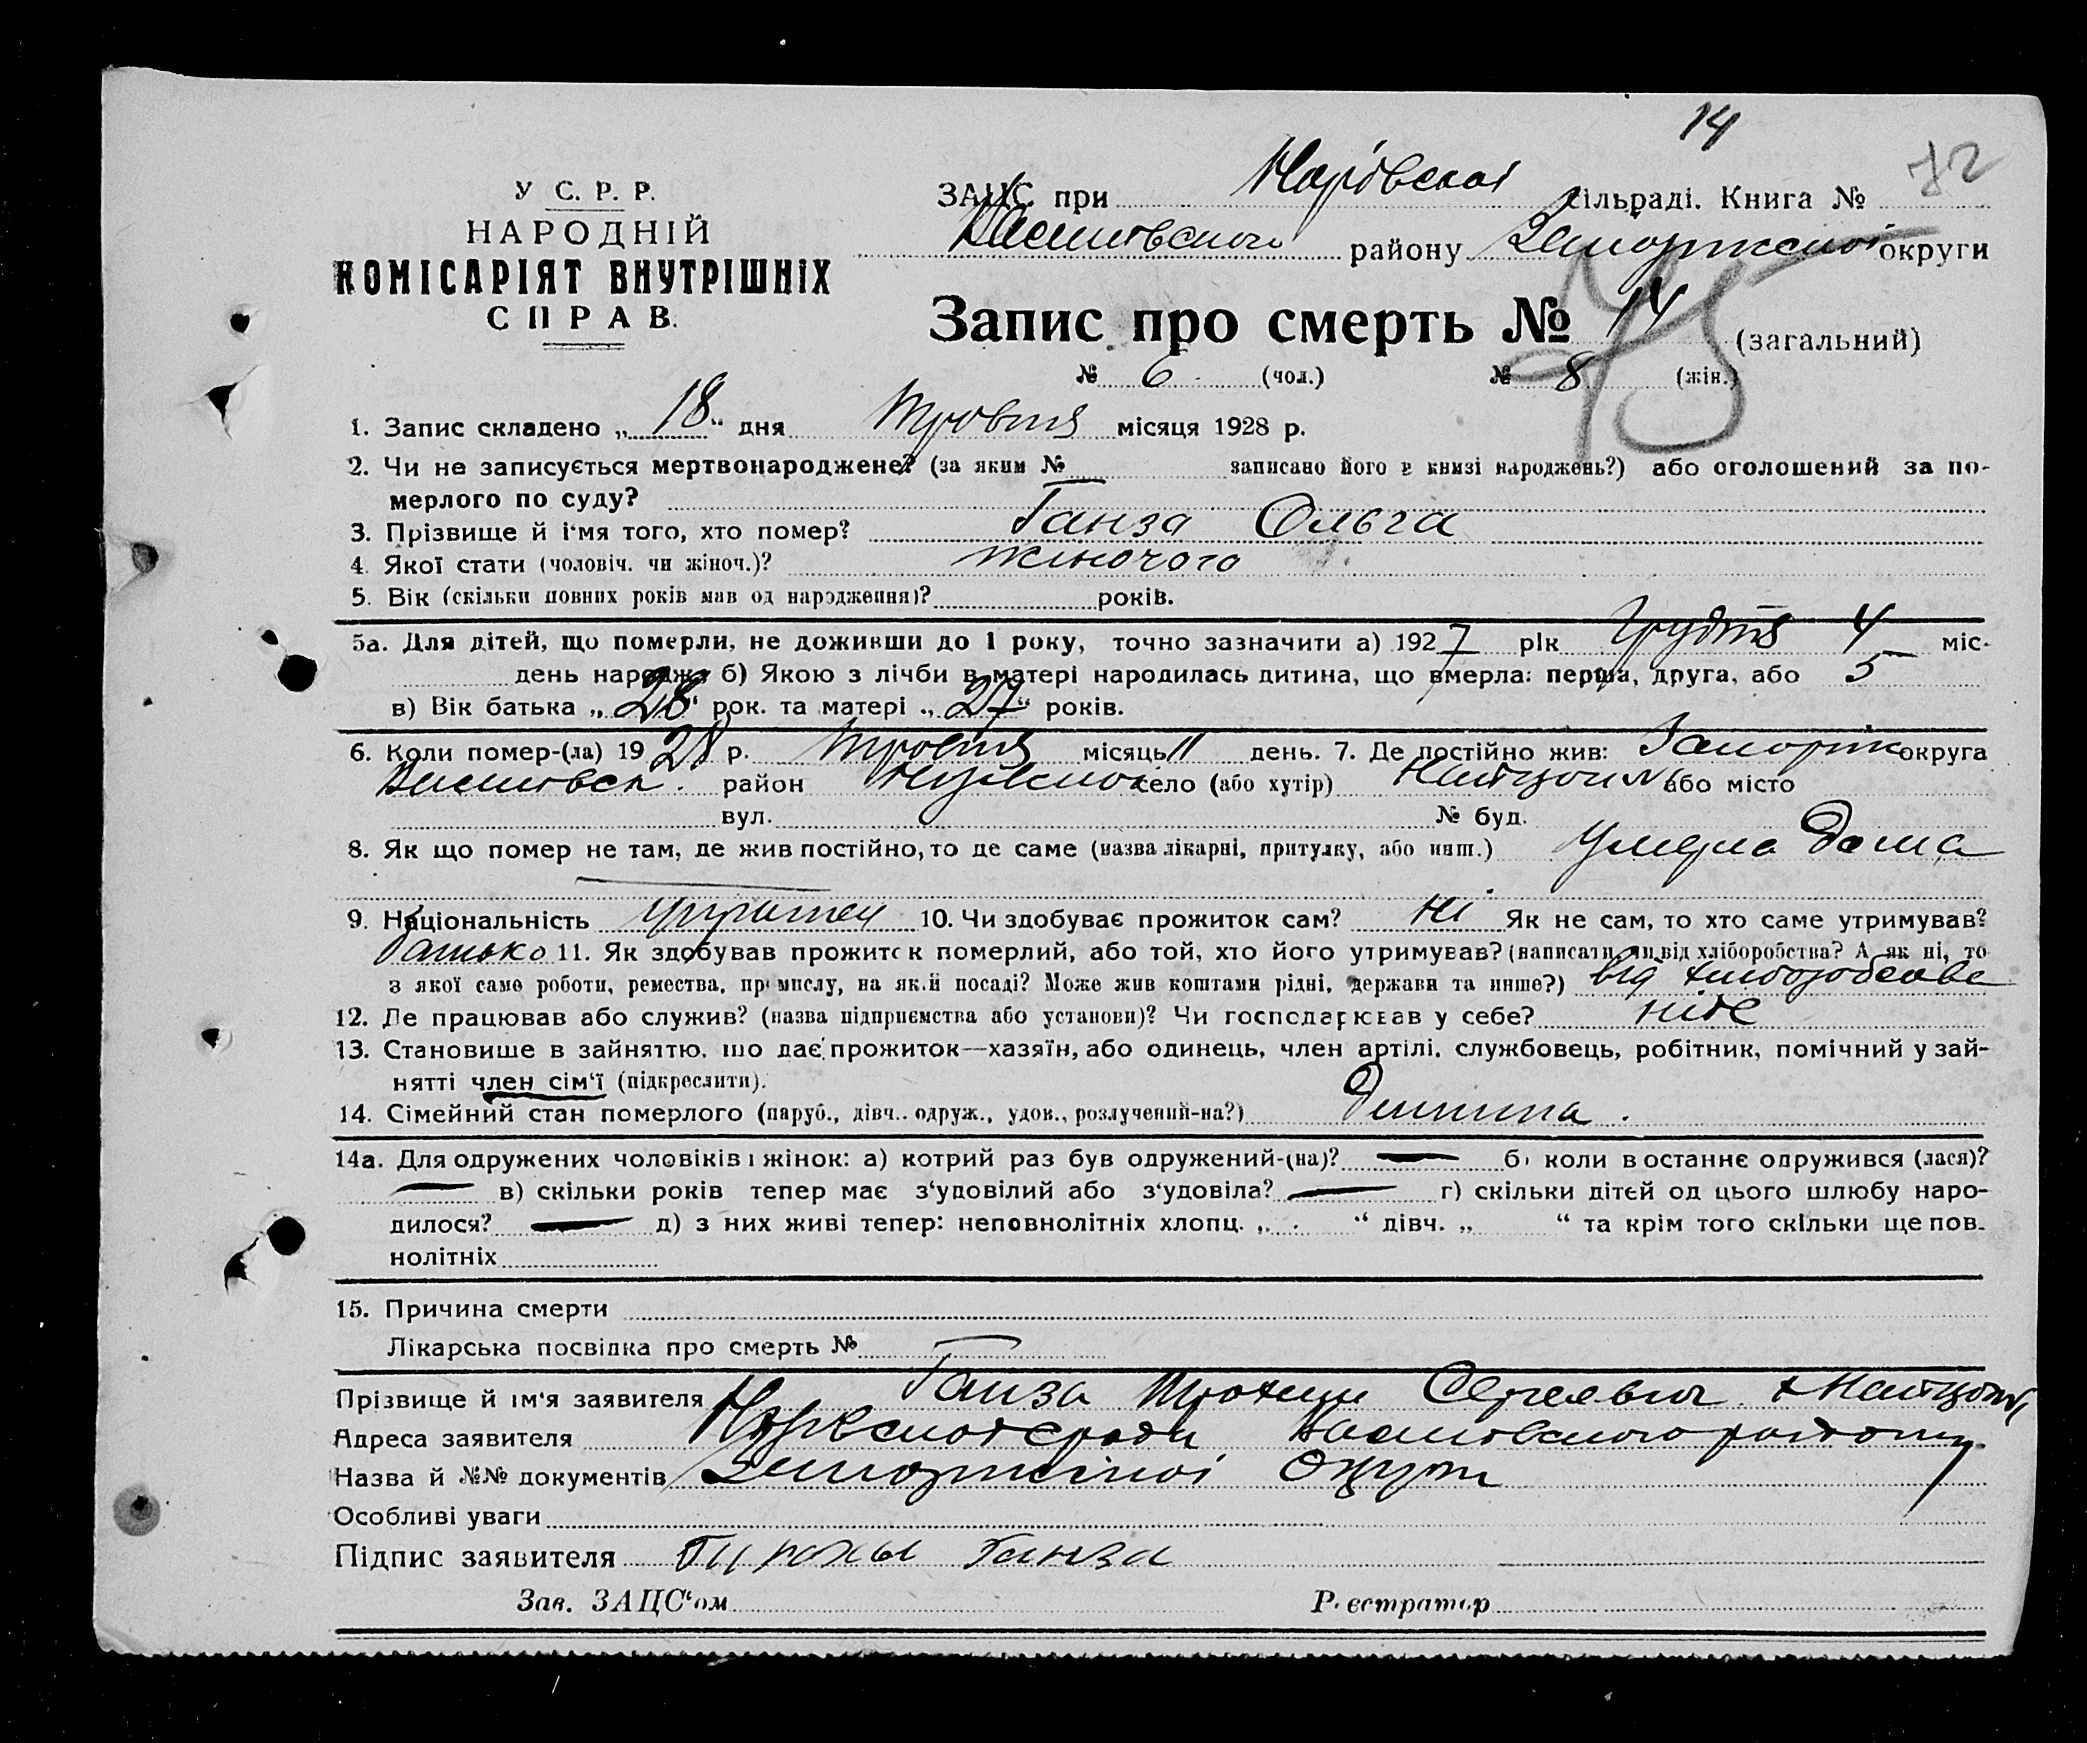 14
72
У С. Р. Р.
НАРОДНІЙ
КОМІСАРІЯТ ВНУТРІШНІХ
СПРАВ.
ЗАЦС при сільраді. Книга №
району округи
75
Запис про смерть № 14 (загальний)
№ 6 (чол.) № 8 (жін.)
1. Запис складено „ 18 “ дня Травня місяця 1928 р.
2. Чи не записується мертвонароджене? (за яким № записано його в книзі народжень?) або оголошений за по-
мерлого по суду?
3. Прізвище й ім'я того, хто помер? Ганза Ольга
4. Якої стати (чоловіч. чи жіноч.)? жіночого
5. Вік (скільки повних років мав од народження)? років.
5а. Для дітей, що померли, не доживши до 1 року, точно зазначити а) 1927 рік Грудня 4 міс-
день народж. б) Якою з лічби в матері народилась дитина, що вмерла: перша, друга, або 5
в) Вік батька „ 28 “ рок. та матері „ 27 “ років.
6. Коли помер-(ла) 1928 р. Травня місяць 11 день. 7. Де постійно жив: округа
район село (або хутір) або місто
вул. № буд.
8. Як що помер не там, де жив постійно, то де саме (назва лікарні, притулку, або инш.) Умерла дома
9. Національність 10. Чи здобуває прожиток сам? Ні Як не сам, то хто саме утримував?
батько 11. Як здобував прожиток померлий, або той, хто його утримував? (написати чи від хліборобства? А як ні, то
з якої саме роботи, ремества, промислу, на якій посаді? Може жив коштами рідні, держави та инше?) від
12. Де працював або служив? (назва підприємства або установи)? Чи господарював у себе? ніде
13. Становище в зайняттю, що дає прожиток—хазяїн, або одинець, член артілі, службовець, робітник, помічний у зай-
нятті член сім'ї (підкреслити).
14. Сімейний стан померлого (паруб., дівч., одруж., удов., розлучений-на?) Дитина.
14а. Для одружених чоловіків і жінок: а) котрий раз був одружений-(на)? — б) коли в останнє одружився (лася)?
— в) скільки років тепер має з'удовілий або з'удовіла? — г) скільки дітей од цього шлюбу наро-
дилося? — д) з них живі тепер: неповнолітніх хлопц. „ “ дівч. „ “ та крім того скільки ще пов-
нолітніх
15. Причина смерти
Лікарська посвідка про смерть №
Прізвище й ім'я заявителя Ганза Сергеевич
Адреса заявителя
Назва й №№ документів
Особливі уваги
Підпис заявителя Ганза
Зав. ЗАЦС'ом Реєстратор